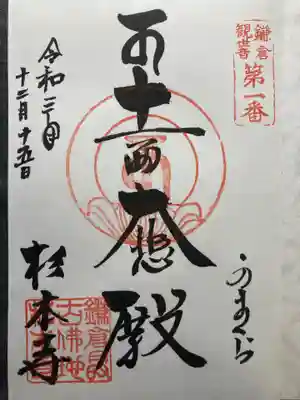 鎌倉
観世音
第一番
かまくら
十一面大悲殿
令和三年
十二月十五日
杉本寺